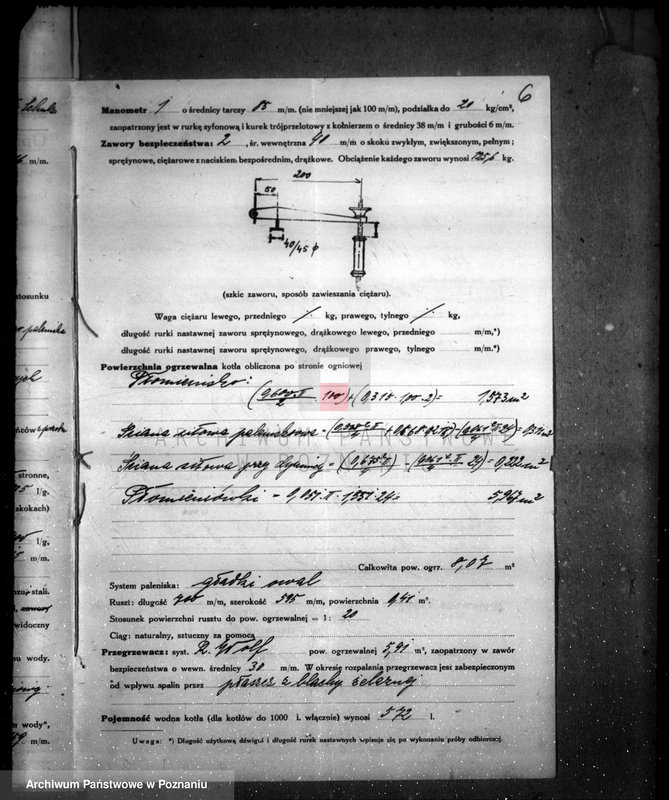 6
Manometr 1 o średnicy tarczy 85 m/m. (nie mniejszej jak 100 m/m), podziałka do 20 kg/cm²,
zaopatrzony jest w rurkę syfonową i kurek trójprzelotowy z kołnierzem o średnicy 38 m/m i grubości 6 m/m.
Zawory bezpieczeństwa: 2, śr. wewnętrzna 40 m/m o skoku zwykłym, zwiększonym, pełnym;
sprężynowe, ciężarowe z naciskiem bezpośrednim, drążkowe. Obciążenie każdego zaworu wynosi 125,6 kg.
200
50
40/45 φ
(szkic zaworu, sposób zawieszania ciężaru).
Waga ciężaru lewego, przedniego /. kg, prawego, tylnego /. kg,
długość rurki nastawnej zaworu sprężynowego, drążkowego lewego, przedniego m/m,*)
długość rurki nastawnej zaworu sprężynowego, drążkowego prawego, tylnego m/m.*)
Powierzchnia ogrzewalna kotła obliczona po stronie ogniowej
Płomienisko:
1,573 m²
Ściana sitowa paleniskowa
Ściana sitowa przy dymnicy 0,222 m²
Płomieniówki = 0,051·π·1,551·24 = 5,962 m²
Całkowita pow. ogrz. 8,07 m²
System paleniska: gładki owal
Ruszt: długość 700 m/m, szerokość 595 m/m, powierzchnia 0,41 m².
Stosunek powierzchni rusztu do pow. ogrzewalnej = 1: 20
Ciąg: naturalny, sztuczny za pomocą
Przegrzewacz: syst. R. Wolf pow. ogrzewalnej 5,91 m², zaopatrzony w zawór
bezpieczeństwa o wewn. średnicy 30 m/m. W okresie rozpalania przegrzewacz jest zabezpieczonym
od wpływu spalin przez płaszcz z blachy żelaznej
Pojemność wodna kotła (dla kotłów do 1000 l. włącznie) wynosi 572 l.
Uwaga: *) Długość użytkową dźwigni i długość rurek nastawnych wpisuje się po wykonaniu próby odbiorczej.
m/m.
stosunku
stronne,
l/g.
skokach)
l/g.
m/m.
stali.
widoczny
mu wody.
m wody",
m/m.
ARCHIWUM PAŃSTWOWE
W POZNANIU
Archiwum Państwowe w Poznaniu